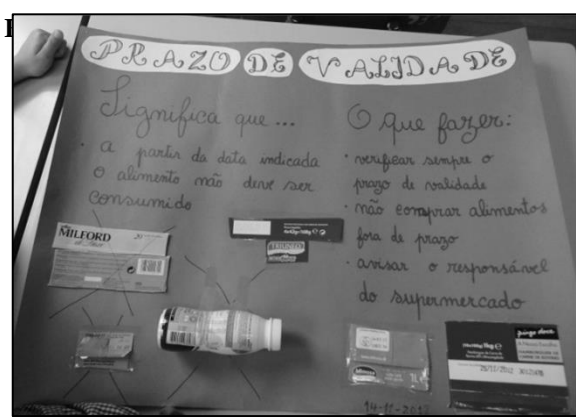 PRAZO DE VALIDADE
Significa que...
• a partir da data indicada
o alimento não deve ser
consumido
O que fazer:
• verificar sempre o
prazo de validade
• não comprar alimentos
fora de prazo
• avisar o responsável
do supermercado
MILFORD
TRIUNFO
pingo doce
1kg
29/11/2012
1L
14-11-2012